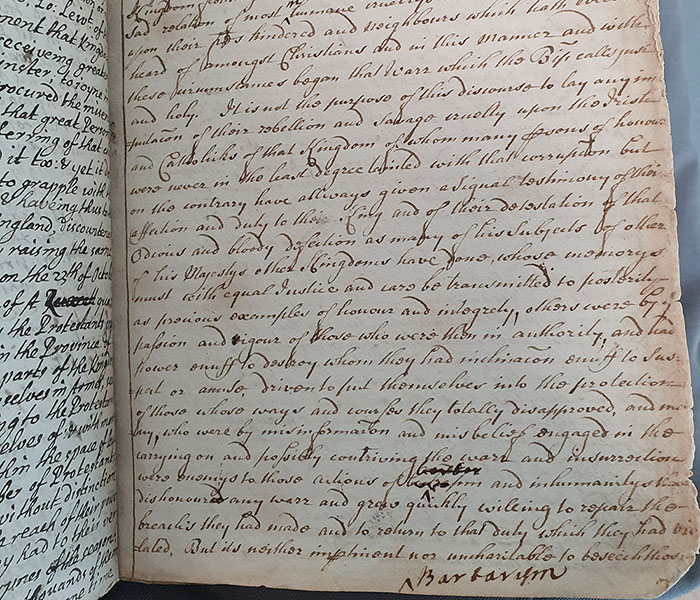 , Lo: Lewt of
ment that Kingd
receiving greate
nister, to joyne w
procured the miser
that great Person
terring of that
d it too: & yet it
to grapple with
& having thus b
ngland, discounten
raising the same
on the 22th of Octob
of A Quarrel qua
the Protestants
in the Province
parts of the Kingd
selves in formes
ng to the Protestan
selves of
hin the space of
ges of Protestan
without distinction
e reach of their
y had to their
gines of the
thousands of
Kingdom from
sad relation of most humane cruelty
upon their kindred and neighbours which hath
heard of amongst Christians and in this manner and with
these circumstances began that Warr which the Bp calls just
and holy. It is not the purpose of this discourse to lay any im
putacon of their rebellion and Savage cruelty upon the Irish
and Catholicks of that Kingdom of whom many psons of honour
were never in the least degree tainted with that corruption but
on the contrary have allways given a Signal testimony of their
affection and duty to their King and of their detestation of that
Odious and bloody defection as many of his Subjects of other
of his Majestys other Kingdoms have done, whose memorys
must with equal Justice and care be transmitted to posterity
as precious examples of honour and integrety, others were by ye
passion and rigour of those who were then in authority, and had
power enuff to destroy whom they had inclinacon enuff to Sus
pect or accuse, driven to put themselves into the protection
of those whose ways and courses they totally disapproved, and ma
ny, who were by misinformation and misbelief engaged in the
carrying on and possibly contriving the warr and insurrection
were enemys to those actions of and inhumanitys that
dishonoured any warr and grew quickly willing to repair the
breaches they had made and to return to that duty which they had vio
lated. But its neither imptinent nor uncharitable to beseech those
^Barbarism